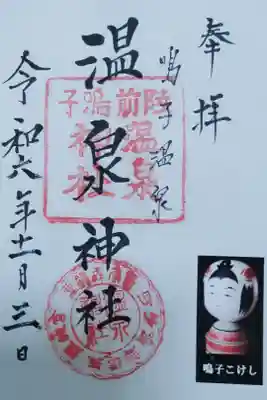 奉拝
鳴子温泉
温泉神社
陸前鳴子
温泉
神社
令和六年十一月三日
鳴子こけし